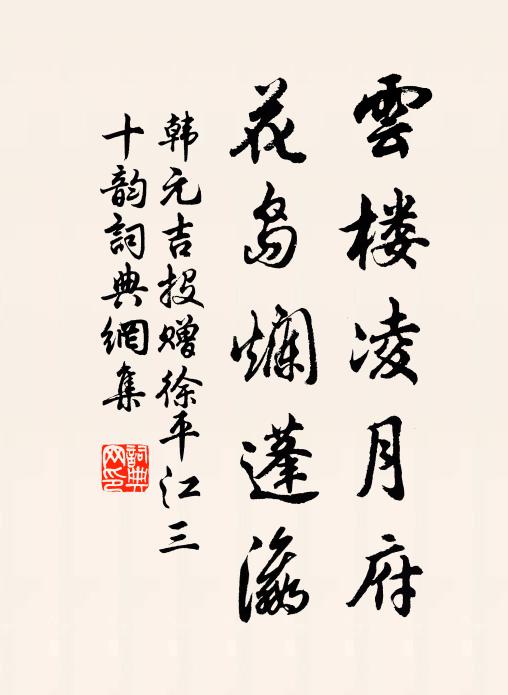 雲楼凌月府
花岛爛蓬瀛
韩元吉投赠徐平江三
十韵詞典網集
詞典网印